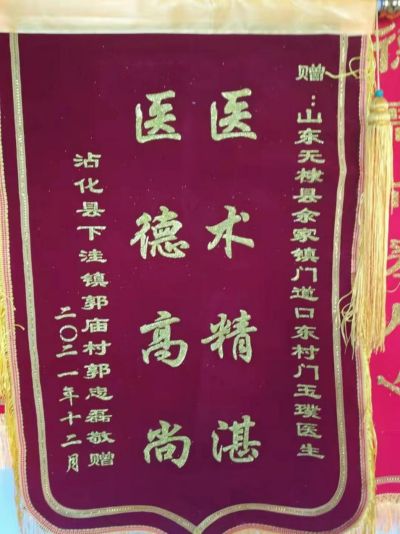 赠:山东无棣县余家镇门道口东村门玉璞医生
医术精湛
医德高尚
沾化县下洼镇郭庙村郭忠磊敬赠
二〇二一年十二月